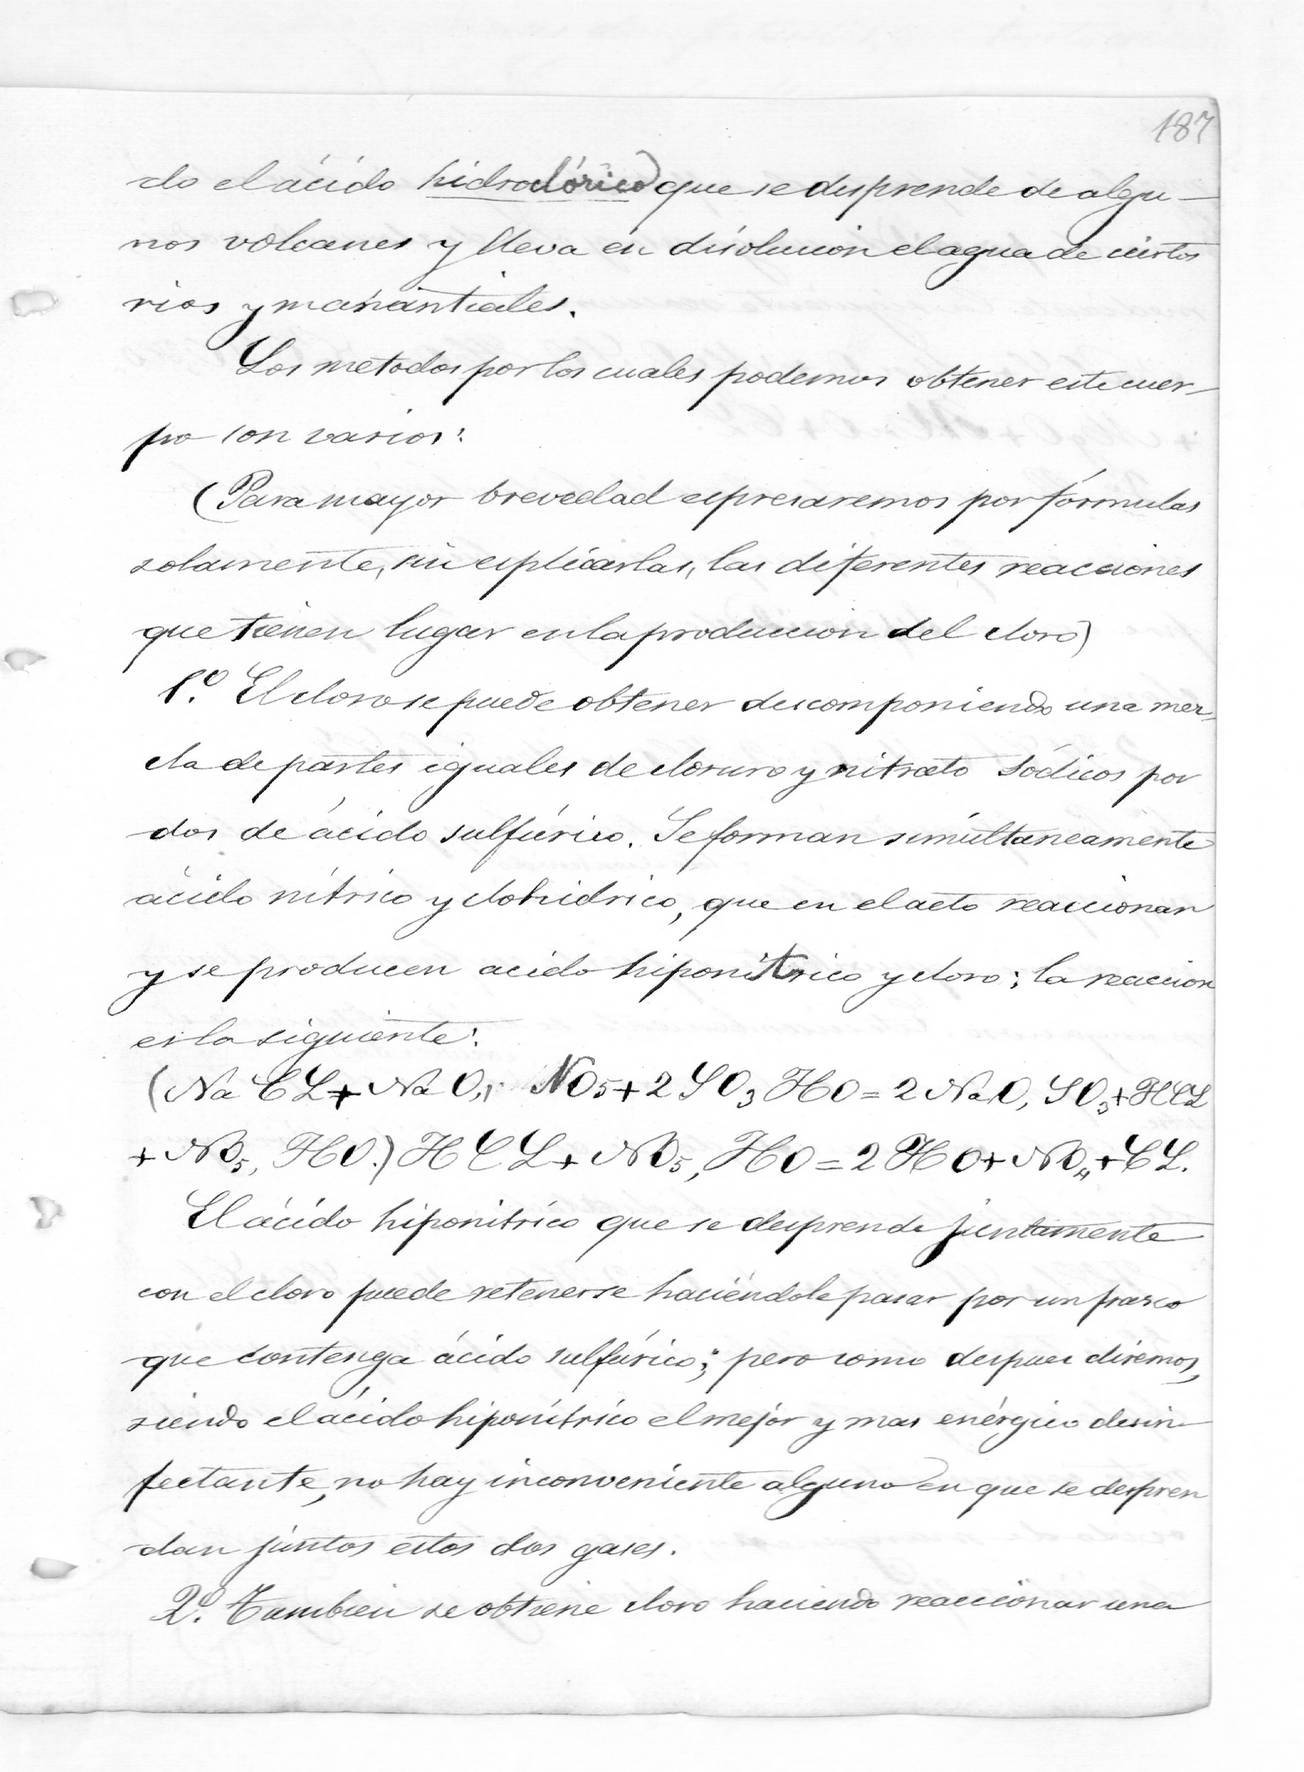 187
do el ácido hidroclórico) que se desprende de algu-
nos volcanes y lleva en disolucion el agua de ciertos
rios y manantiales.
Los metodos por los cuales podemos obtener este cuer-
po son varios:
(Para mayor brevedad espresaremos por fórmulas
solamente, sin esplicarlas, las diferentes reacciones
que tienen lugar en la produccion del cloro)
1.º El cloro se puede obtener descomponiendo una mez-
cla de partes iguales de cloruro y nitrato sódicos por
dos de ácido sulfúrico. Se forman simultaneamente
ácido nítrico y clohidrico, que en el acto reaccionan
y se producen acido hiponitrico y cloro; la reaccion
es la siguiente:
(Na CL + Na O, NO5 + 2 SO3 HO = 2 Na O, SO3 + HCL
+ NO5, HO.) H CL + NO5, HO = 2 HO + NO4 + CL.
El ácido hiponitrico que se desprende juntamente
con el cloro puede retenerse haciéndole pasar por un frasco
que contenga ácido sulfúrico; pero como despues diremos,
siendo el ácido hiponítrico el mejor y mas enérgico desin-
fectante, no hay inconveniente alguno en que se despren
dan juntos estos dos gases.
2.º Tambien se obtiene cloro haciendo reaccionar una